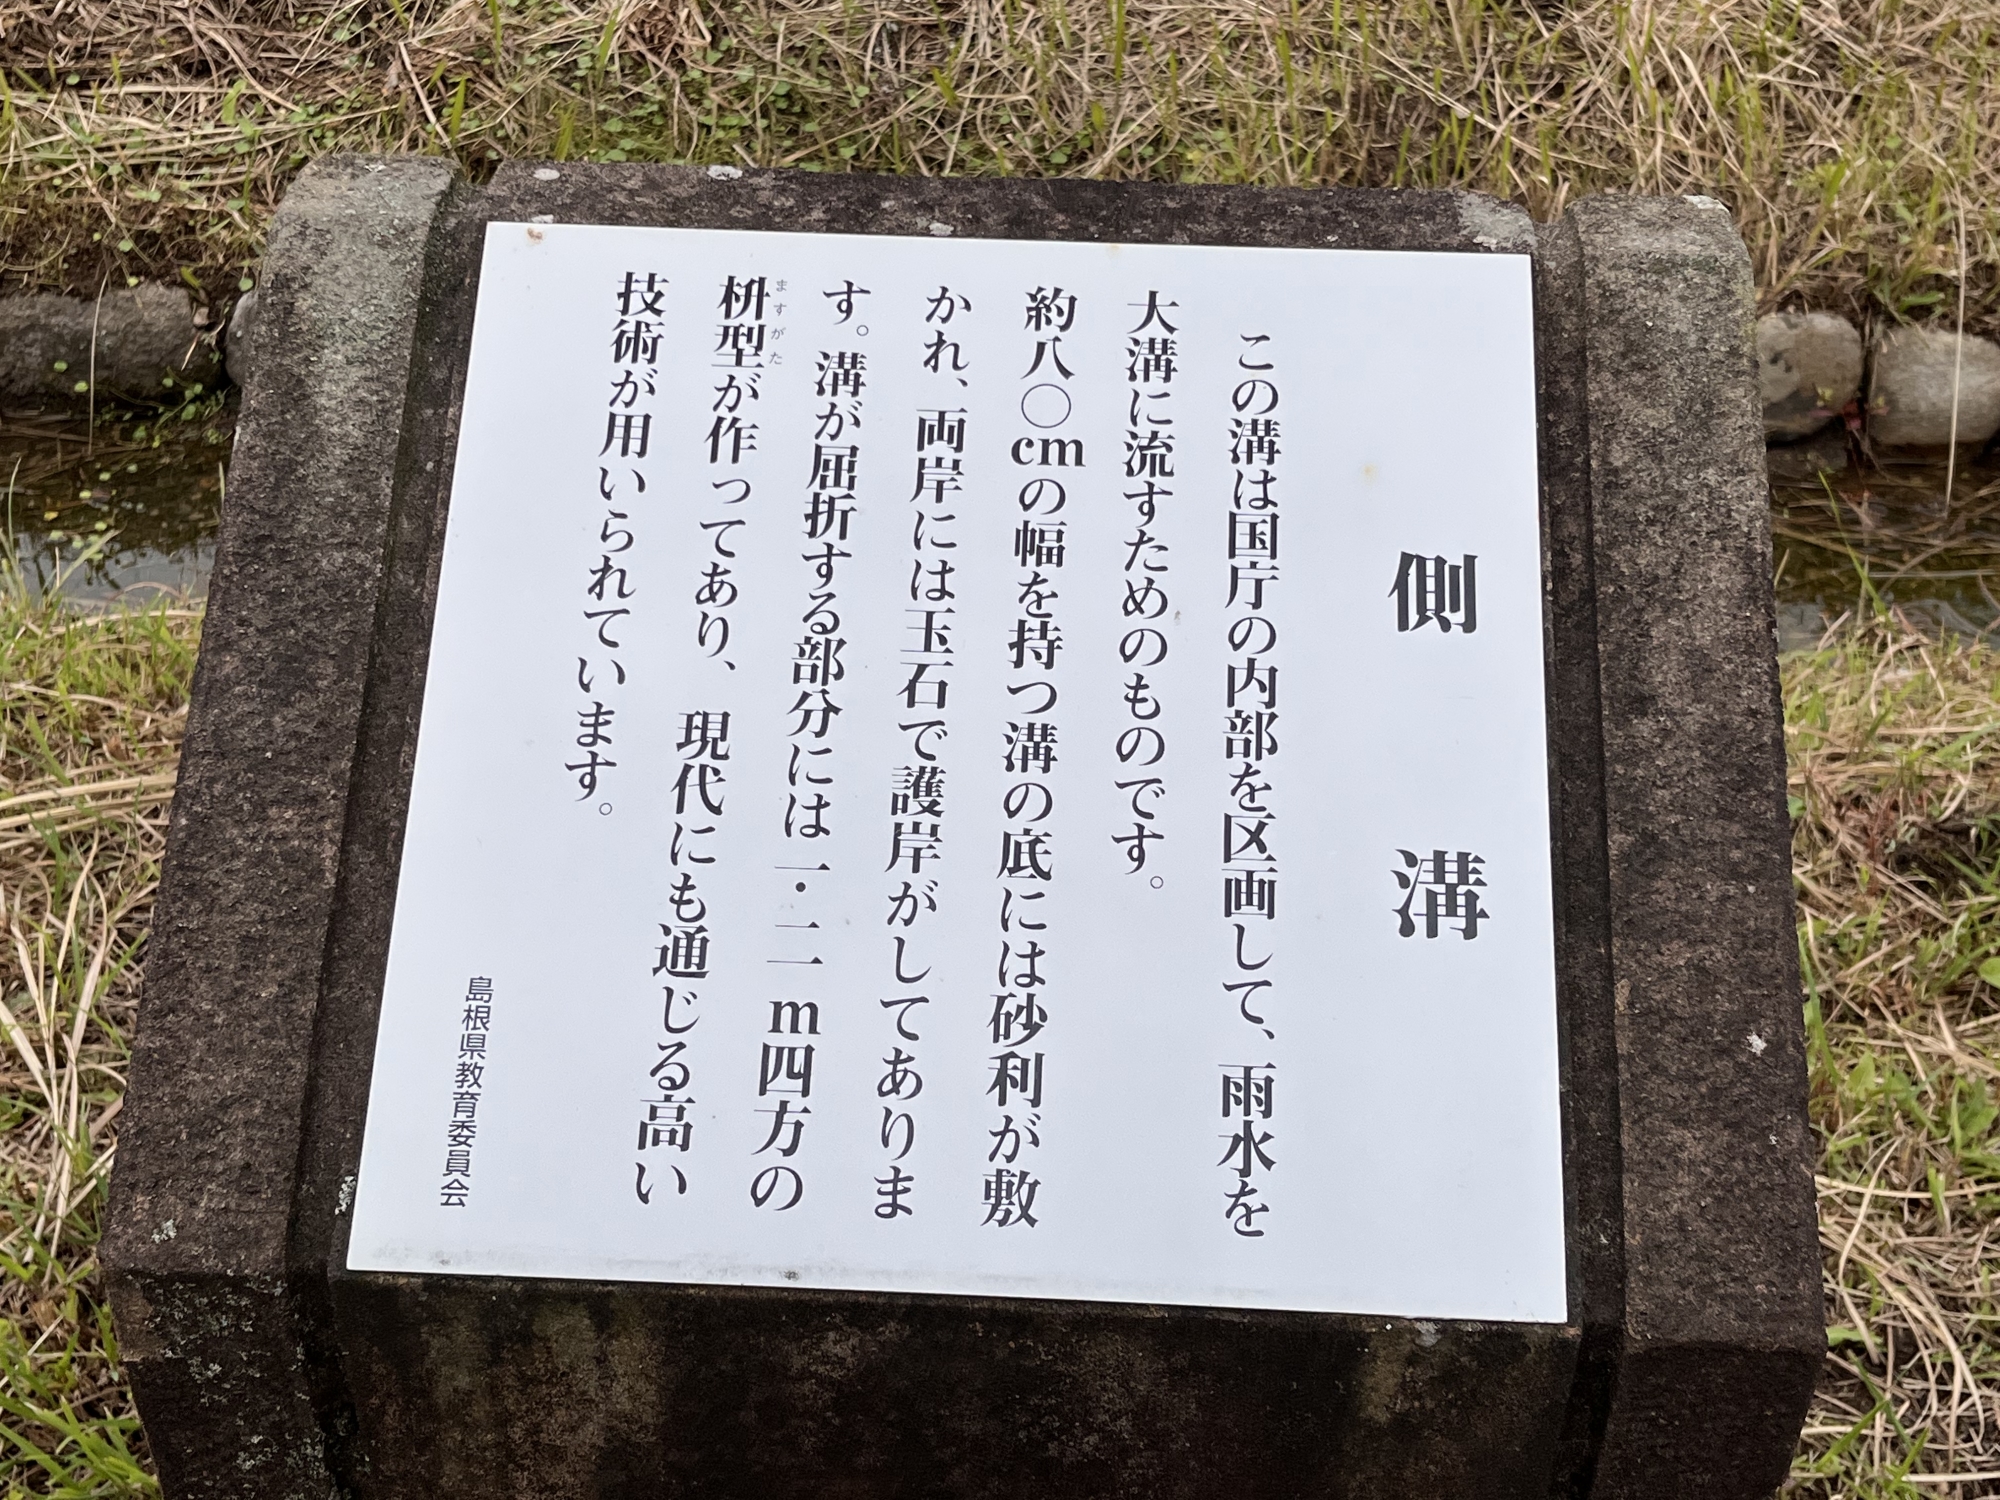 側溝
この溝は国庁の内部を区画して、雨水を
大溝に流すためのものです。
約八〇cmの幅を持つ溝の底には砂利が敷
かれ、両岸には玉石で護岸がしてありま
す。溝が屈折する部分には一・二m四方の
枡型が作ってあり、現代にも通じる高い
ますがた
技術が用いられています。
島根県教育委員会